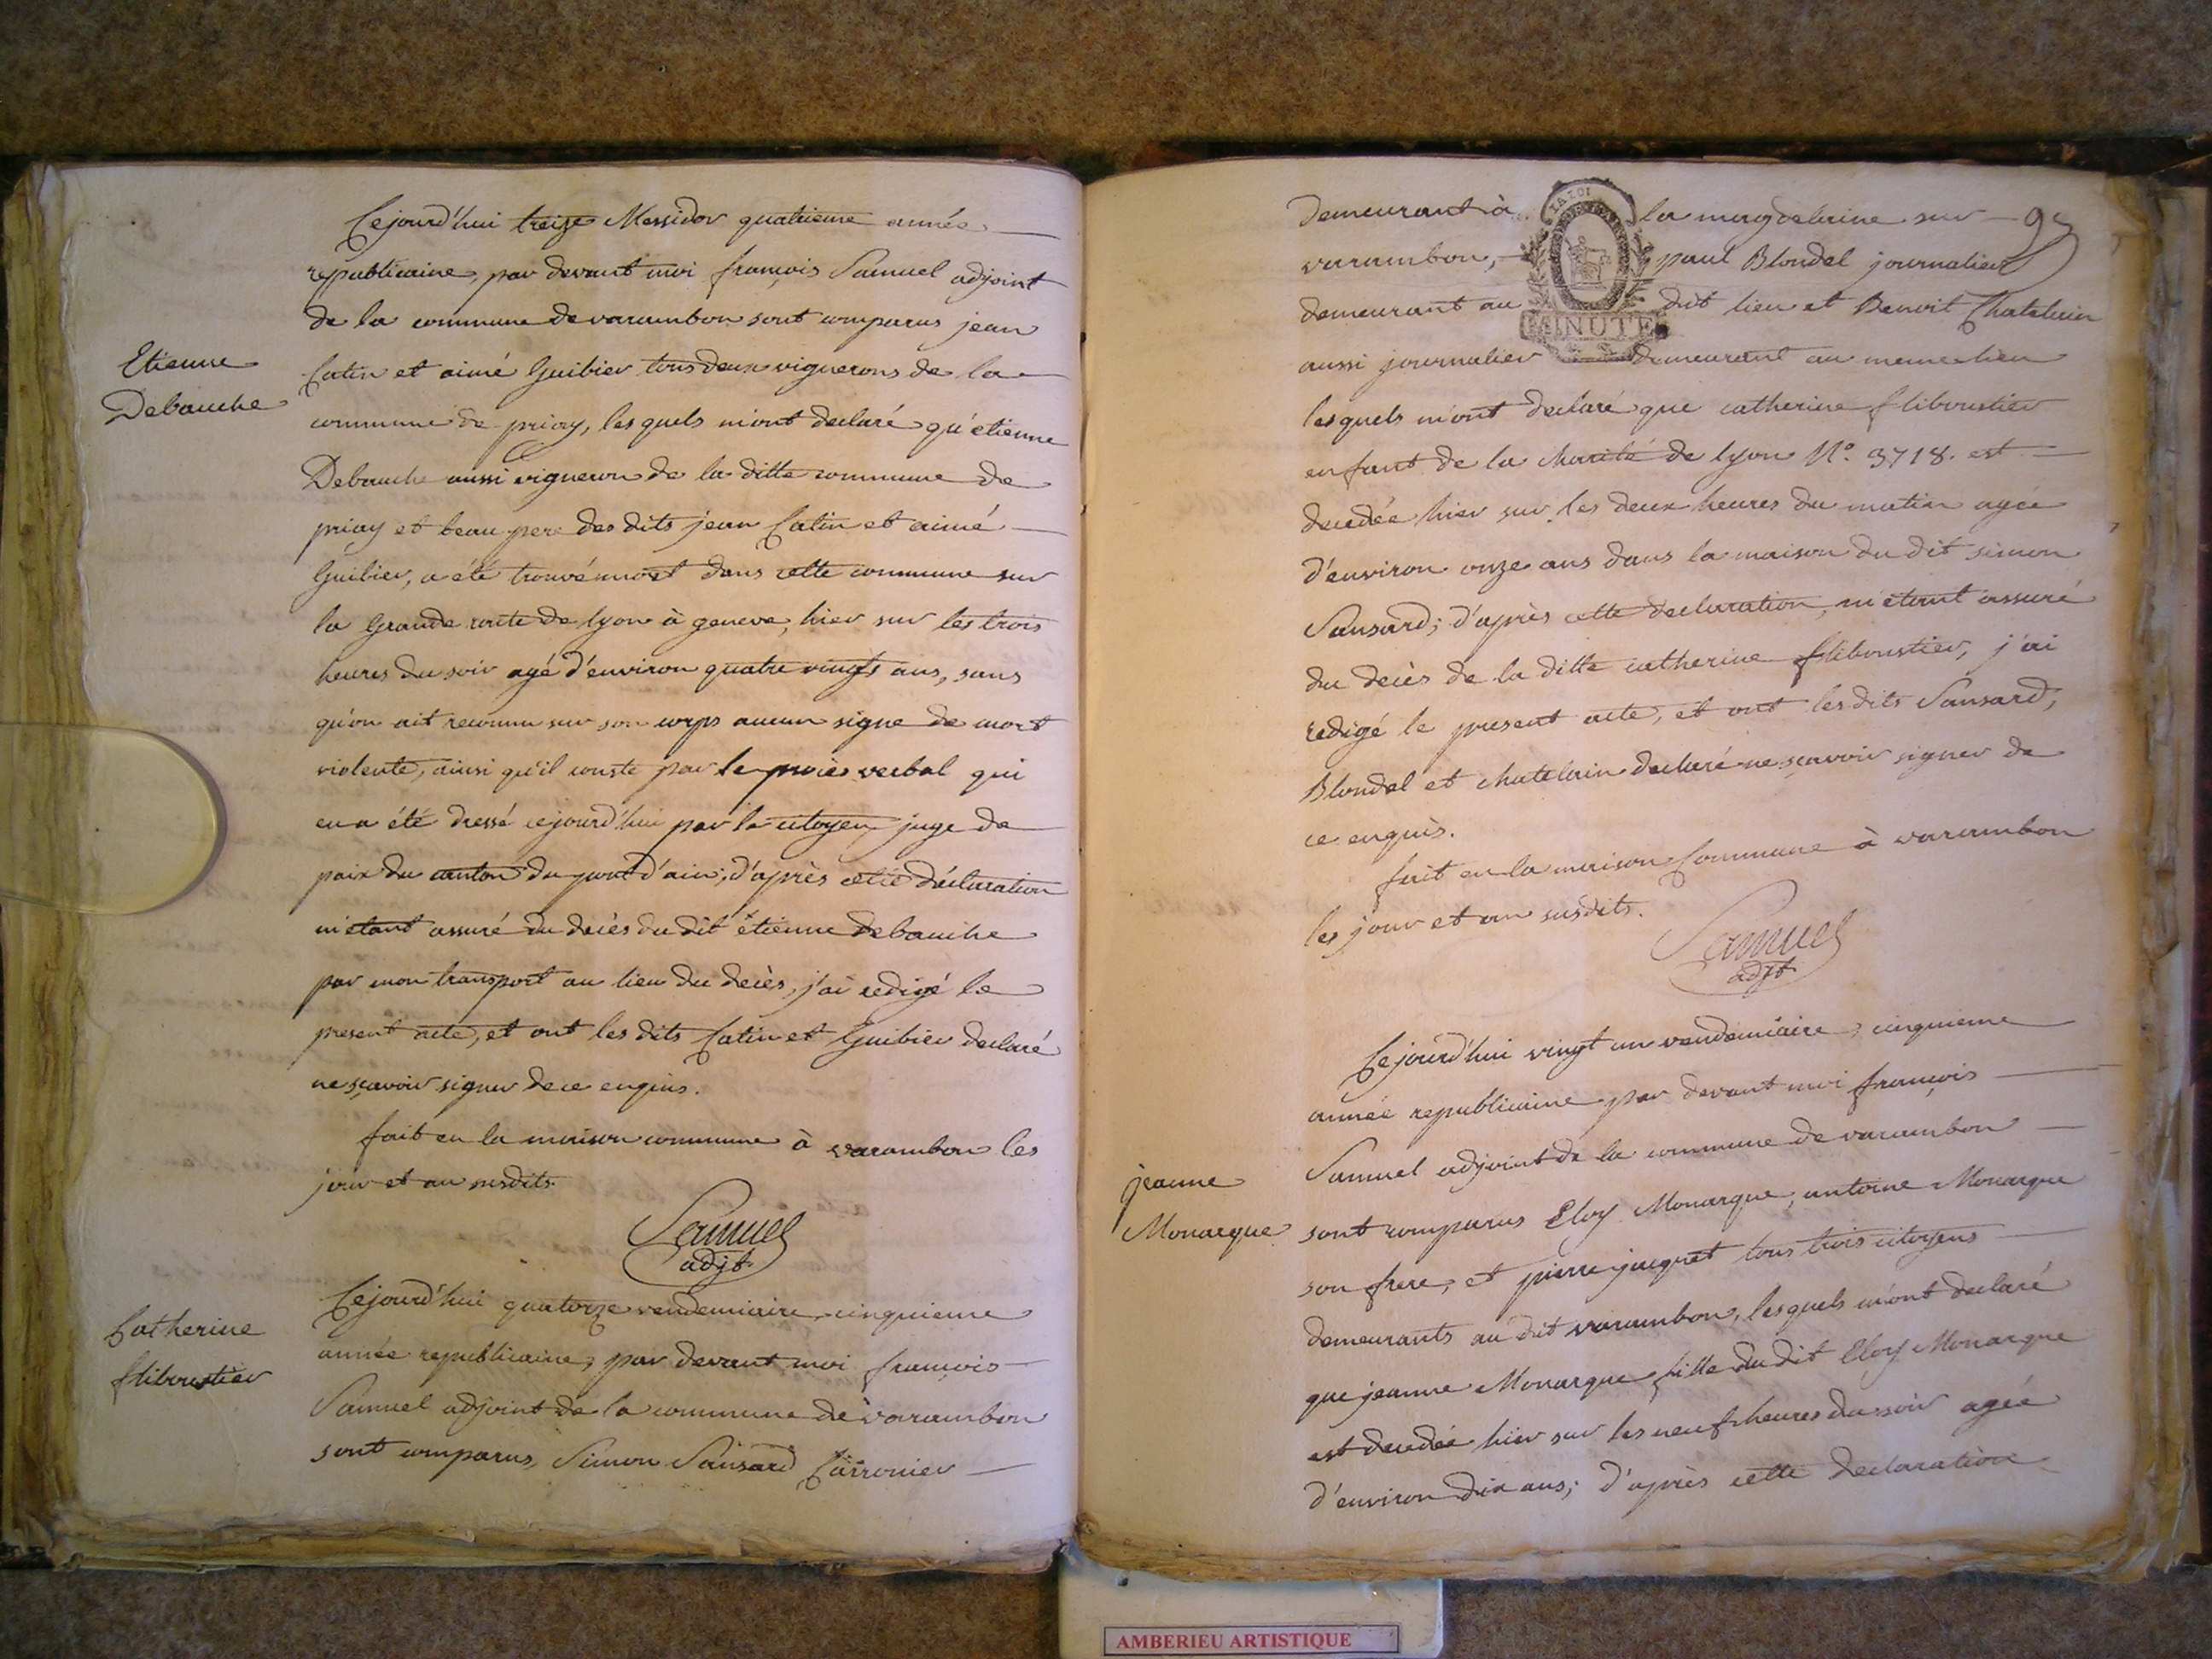 Cejourd'hui treize Messidor quatrieme année
republicaine, par devant moi françois Samuel adjoint
de la commune de varambon sont comparus jean
Etienne
Debauche
Catin et aimé Guibier tous deux vignerons de la
commune de priay, lesquels m'ont declaré qu'etienne
Debauche aussi vigneron de la ditte commune de
priay et beau pere des dits jean Catin et aimé
Guibier, a été trouvé mort dans cette commune sur
la Grande route de lyon à geneve, hier sur les trois
heures du soir agé d'environ quatre vingts ans, sans
qu'on ait reconnu sur son corps aucun signe de mort
violente, ainsi qu'il conste par le procès verbal qui
en a été dressé cejourd'hui par le citoyen juge de
paix du canton du pont d'ain; d'après cette déclaration
m'etant assuré du decès du dit étienne Debauche
par mon transport au lieu du decès, j'ai redigé le
present acte, et ont les dits Catin et Guibier declaré
ne sçavoir signer de ce enquis.
fait en la maison commune à varambon les
jour et an susdits.
Samuel
adjt
Catherine
fliboustier
Cejourd'hui quatorze vendemiaire cinquieme
année republicaine, par devant moi françois
Samuel adjoint de la commune de varambon
sont comparus, Simon Sansard
demeurant à la magdelaine sur
varambon, paul Blondel journalier
demeurant au dit lieu et Benoit Chatelain
aussi journalier demeurant au meme lieu
lesquels m'ont declaré que catherine fliboustier
enfant de la charité de lyon N°. 3718. est
decedée hier sur les deux heures du matin agée
d'environ onze ans dans la maison du dit simon
Sansard; d'après cette declaration, m'etant assuré
du decès de la ditte catherine fliboustier, j'ai
redigé le present acte, et ont les dits Sansard,
Blondel et chatelain declaré ne sçavoir signer de
ce enquis.
fait en la maison Commune à varambon
les jour et an susdits.
Samuel
adjt
LA LOI
MINUTE
jeanne
Monarque
Cejourd'hui vingt un vendemiaire, cinquieme
année republicaine par devant moi françois
Samuel adjoint de la commune de varambon
sont comparus Eloy Monarque, antoine Monarque
son frere, et pierre jacquet tous trois citoyens
demeurants au dit varambon, lesquels m'ont declaré
que jeanne Monarque fille du dit Eloy Monarque
est decedée hier sur les neuf heures du soir agée
d'environ dix ans; d'après cette declaration
AMBERIEU ARTISTIQUE